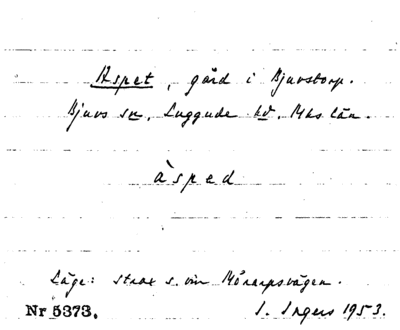 Aspet, gård i Bjuvstorp.
Bjuvs sn, Luggude hd. Mhs län.
àsped
Läge: strax s. om Mörarpsvägen.
Nr 5373. I. Ingers 1953.